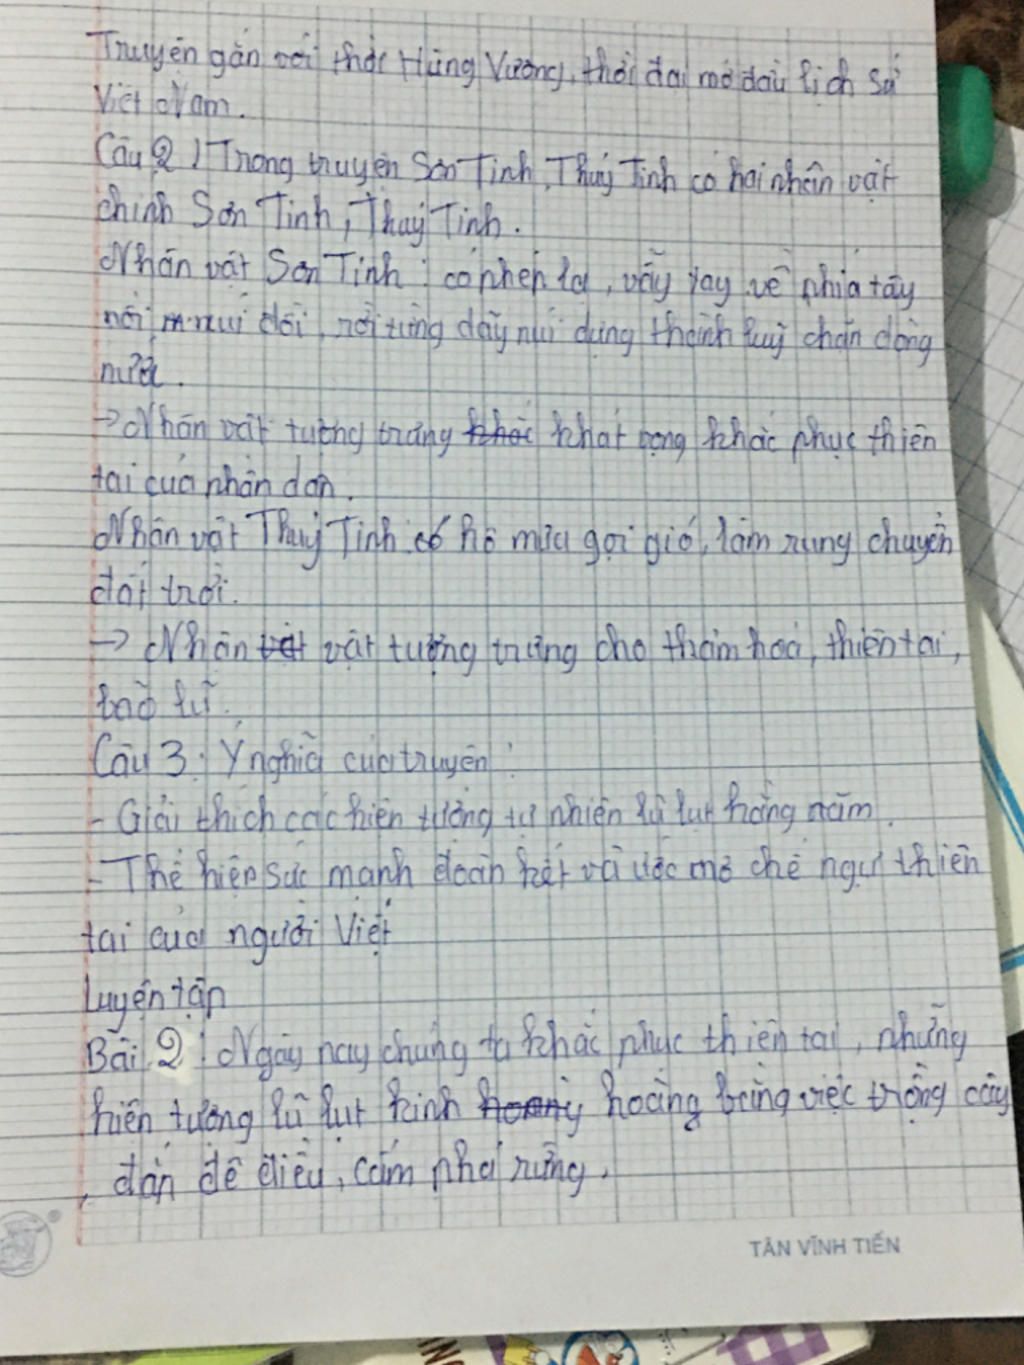 Truyện gắn với thời Hùng Vương, thời đại mở đầu lịch sử
Việt Nam.
Câu 2) Trong truyện Sơn Tinh, Thuỷ Tinh có hai nhân vật
chính Sơn Tinh, Thuỷ Tinh.
Nhân vật Sơn Tinh: có phép lạ, vẫy tay về phía tây
nổi núi đồi, rời từng dãy núi dựng thành luỹ chắn dòng
nước.
→ Nhân vật tượng trưng khát vọng khắc phục thiên
tai của nhân dân.
Nhân vật Thuỷ Tinh có hô mưa gọi gió, làm rung chuyển
đất trời.
→ Nhân vật tượng trưng cho thảm hoạ, thiên tai,
bão lũ.
Câu 3: Ý nghĩa của truyện:
- Giải thích các hiện tượng tự nhiên lũ lụt hằng năm.
- Thể hiện sức mạnh đoàn kết và ước mơ chế ngự thiên
tai của người Việt
Luyện tập
Bài 2: Ngày nay chúng ta khắc phục thiên tai, những
hiện tượng lũ lụt kinh hoàng bằng việc trồng cây
, đắp đê điều, cấm phá rừng.
TÂN VĨNH TIẾN